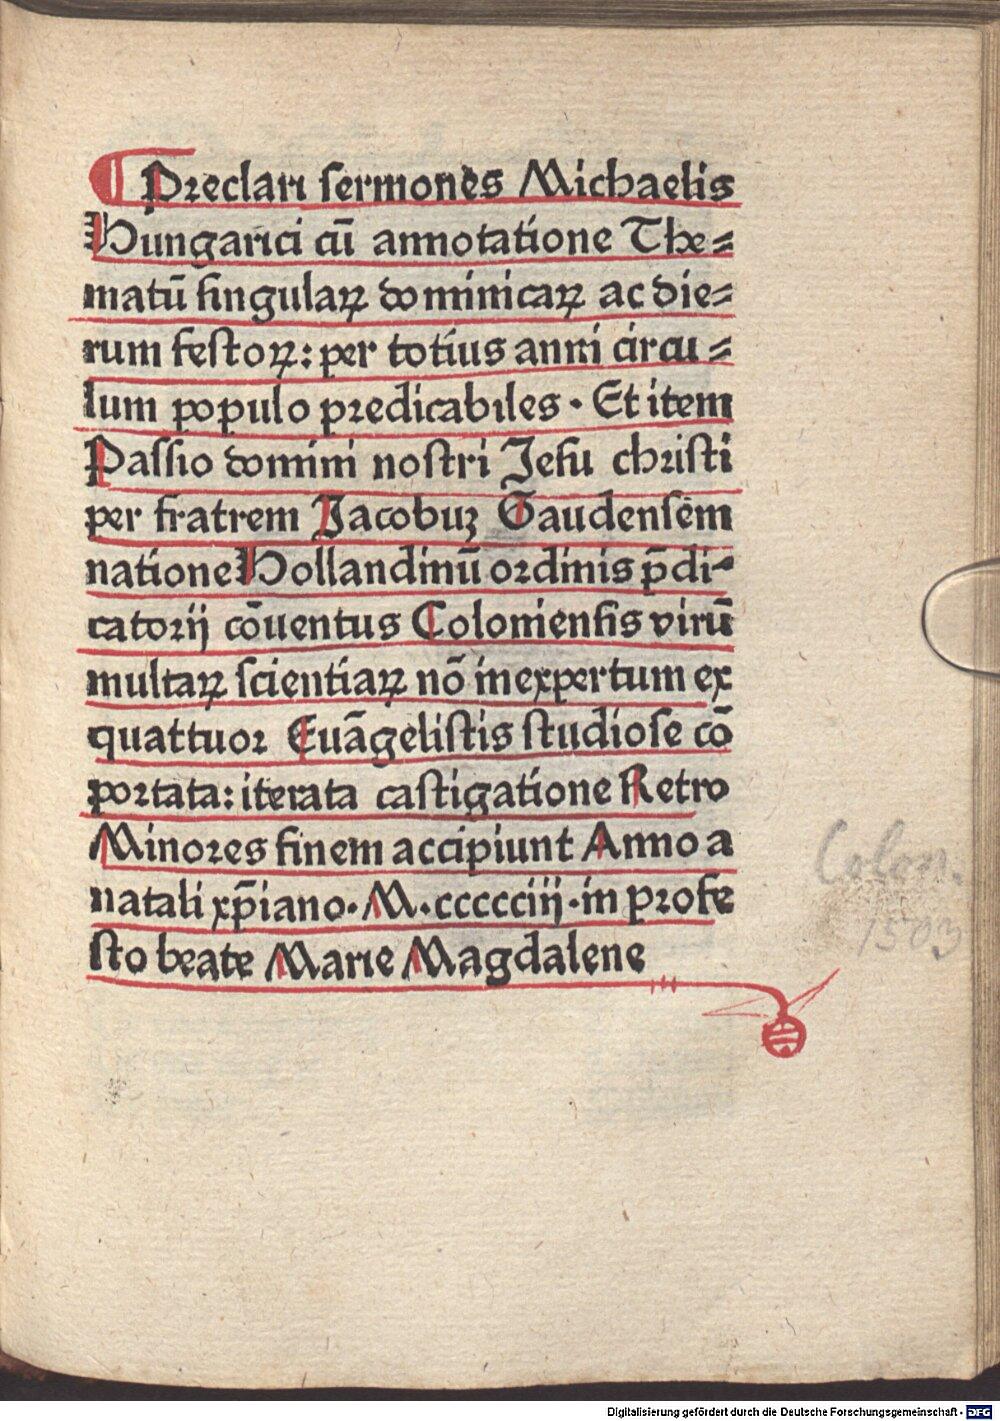 ¶ Preclari sermones Michaelis
Hungarici cũ annotatione The⸗
matũ singulaꝝ dominicaꝝ ac die⸗
rum festoꝝ: per totius anni circu⸗
lum populo predicabiles · Et item
Passio domini nostri Jesu christi
per fratrem Jacobuꝫ Gaudensem
natione Hollandinũ ordinis p̄di⸗
catorij cōuentus Coloniensis virũ
multaꝝ scientiaꝝ nō inexpertum ex
quattuor Euãgelistis studiose cō
portata: iterata castigatione Retro
Minores finem accipiunt Anno a
natali xp̄iano· M·ccccciij·in profe
sto beate Marie Magdalene
Colon.
1503
Digitalisierung gefördert durch die Deutsche Forschungsgemeinschaft - DFG